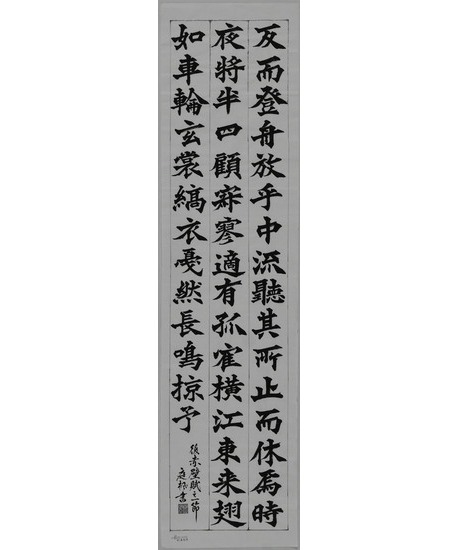 反而登舟放乎中流聽其所止而休焉時
夜將半四顧寂寥適有孤寉橫江東来翅
如車輪玄裳縞衣戞然長鳴掠予
後赤壁賦之一節
庭 書